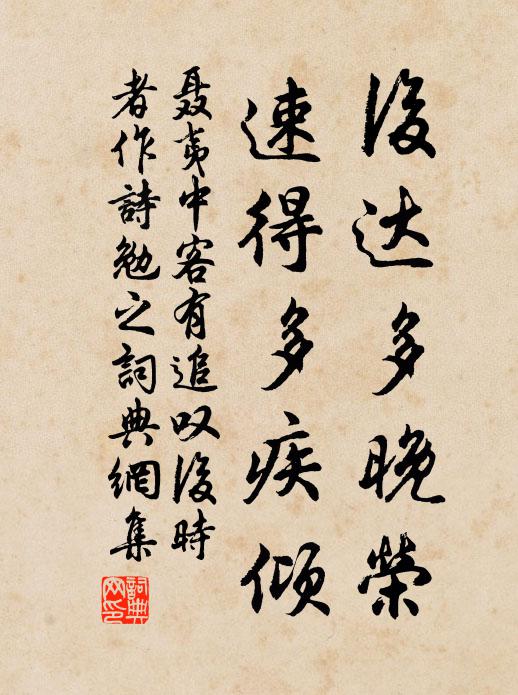 後达多晚榮
速得多疾傾
聂夷中客有追叹後時
者作詩勉之詞典網集
詞典
网印